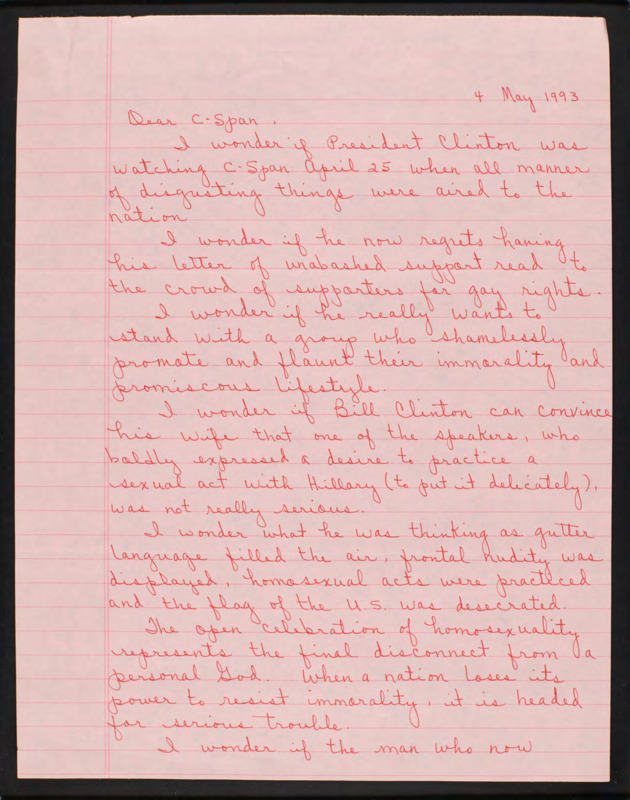 4 May 1993
Dear C-Span.
I wonder if President Clinton was
watching C-Span April 25 when all manner
of disgusting things were aired to the
nation
I wonder if he now regrets having
his letter of unabashed support read to
the crowd of supporters for gay rights.
I wonder if he really wants to
stand with a group who shamelessly
promote and flaunt their immorality and
promiscous lifestyle.
I wonder if Bill Clinton can convince
his wife that one of the speakers, who
boldly expressed a desire to practice a
sexual act with Hillary (to put it delicately),
was not really serious.
I wonder what he was thinking as gutter
language filled the air, frontal nudity was
displayed, homosexual acts were practiced
and the flag of the U.S. was desecrated.
The open celebration of homosexuality
represents the final disconnect from a
personal God. When a nation loses its
power to resist immorality, it is headed
for serious trouble.
I wonder if the man who now